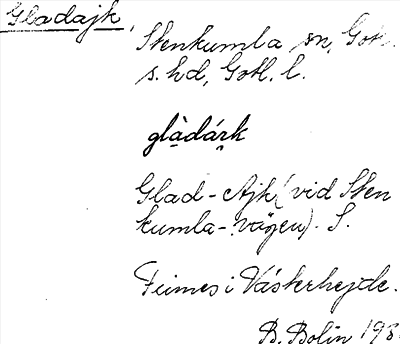 Gladajk,
Stenkumla sn, Gotl.
s. hd, Gotl. l.
glàdárk
Glad-Ajk (vid Sten
kumla-vägen). S.
Finnes i Västerhejde.
B. Bolin 193